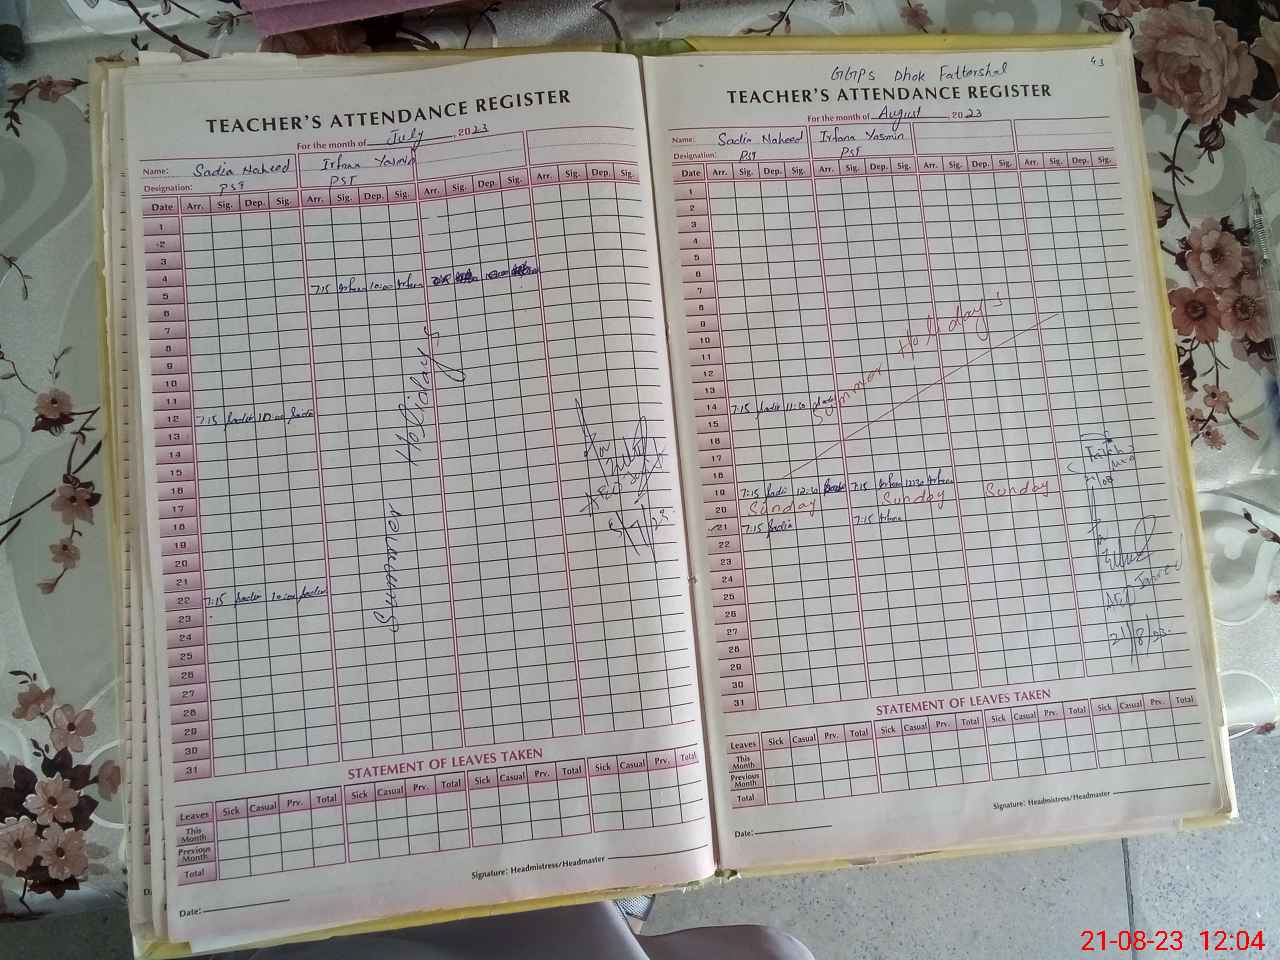 TEACHER'S ATTENDANCE REGISTER
For the month of July, 2023
Name: Sadia Naheed Irfana Yasmin
Designation: PST PST
Date Arr. Sig. Dep. Sig. Arr. Sig. Dep. Sig. Arr. Sig. Dep. Sig. Arr. Sig. Dep. Sig.
1
2
3
4
5 7:15 Irfana 10:00 Irfana
6
7
8
9
10
11
12 7:15 Sadia 10:00 Sadia
13
14
15
16
17
18
19
20
21
22 7:15 Sadia 10:00 Sadia
23
24
25
26
27
28
29
30
31
Summer Holidays
STATEMENT OF LEAVES TAKEN
Leaves Sick Casual Prv. Total Sick Casual Prv. Total Sick Casual Prv. Total
This Month
Previous Month
Total
Signature: Headmistress/Headmaster
Date:
GGPS Dhok Fattershal
43
TEACHER'S ATTENDANCE REGISTER
For the month of August, 2023
Name: Sadia Naheed Irfana Yasmin
Designation: PST PST
Date Arr. Sig. Dep. Sig. Arr. Sig. Dep. Sig. Arr. Sig. Dep. Sig. Arr. Sig. Dep. Sig.
1
2
3
4
5
6
7
8
9
10
11
12
13
14 7:15 Sadia 11:30 Sadia
15
16
17
18
19 7:15 Sadia 12:30 7:15 Irfana 12:30 Irfana
20 Sunday Sunday Sunday
21 7:15 Sadia 7:15 Irfana
22
23
24
25
26
27
28
29
30
31
Summer Holiday's
21/8/23.
STATEMENT OF LEAVES TAKEN
Leaves Sick Casual Prv. Total Sick Casual Prv. Total Sick Casual Prv. Total Sick Casual Prv. Total
This Month
Previous Month
Total
Signature: Headmistress/Headmaster
Date:
21-08-23 12:04